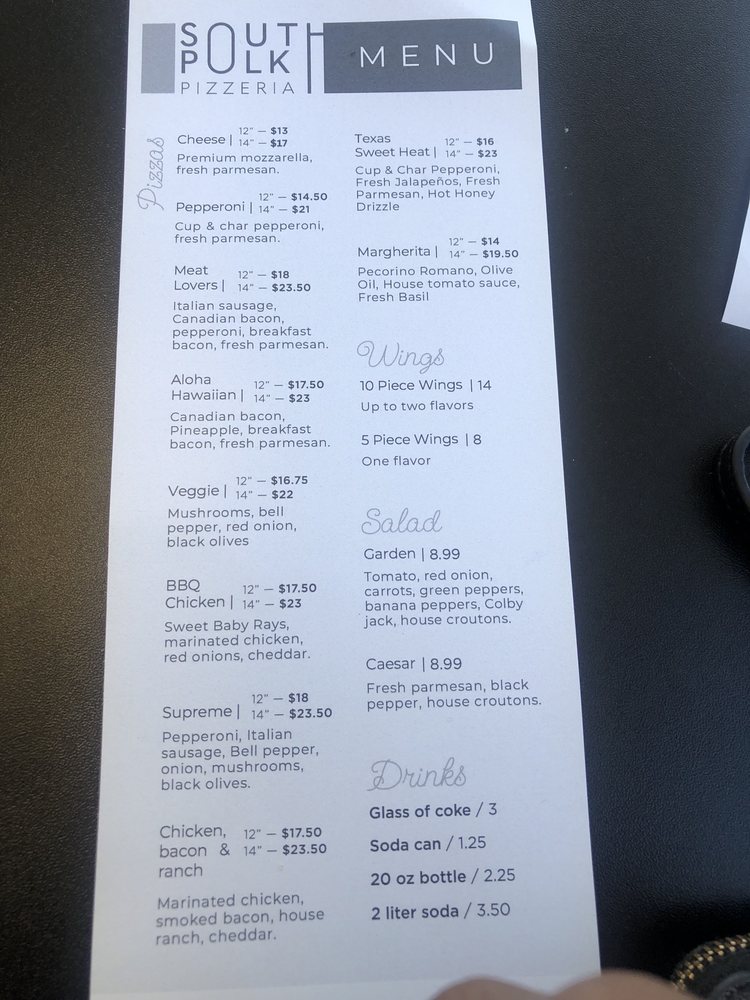 SOUTH
POLK
PIZZERIA
MENU
Pizzas
Cheese | 12" — $13
14" — $17
Premium mozzarella,
fresh parmesan.
Pepperoni | 12" — $14.50
14" — $21
Cup & char pepperoni,
fresh parmesan.
Meat
Lovers | 12" — $18
14" — $23.50
Italian sausage,
Canadian bacon,
pepperoni, breakfast
bacon, fresh parmesan.
Aloha
Hawaiian | 12" — $17.50
14" — $23
Canadian bacon,
Pineapple, breakfast
bacon, fresh parmesan.
Veggie | 12" — $16.75
14" — $22
Mushrooms, bell
pepper, red onion,
black olives
BBQ
Chicken | 12" — $17.50
14" — $23
Sweet Baby Rays,
marinated chicken,
red onions, cheddar.
Supreme | 12" — $18
14" — $23.50
Pepperoni, Italian
sausage, Bell pepper,
onion, mushrooms,
black olives.
Chicken, 12" — $17.50
bacon & 14" — $23.50
ranch
Marinated chicken,
smoked bacon, house
ranch, cheddar.
Texas
Sweet Heat | 12" — $16
14" — $23
Cup & Char Pepperoni,
Fresh Jalapeños, Fresh
Parmesan, Hot Honey
Drizzle
Margherita | 12" — $14
14" — $19.50
Pecorino Romano, Olive
Oil, House tomato sauce,
Fresh Basil
Wings
10 Piece Wings | 14
Up to two flavors
5 Piece Wings | 8
One flavor
Salad
Garden | 8.99
Tomato, red onion,
carrots, green peppers,
banana peppers, Colby
jack, house croutons.
Caesar | 8.99
Fresh parmesan, black
pepper, house croutons.
Drinks
Glass of coke / 3
Soda can / 1.25
20 oz bottle / 2.25
2 liter soda / 3.50